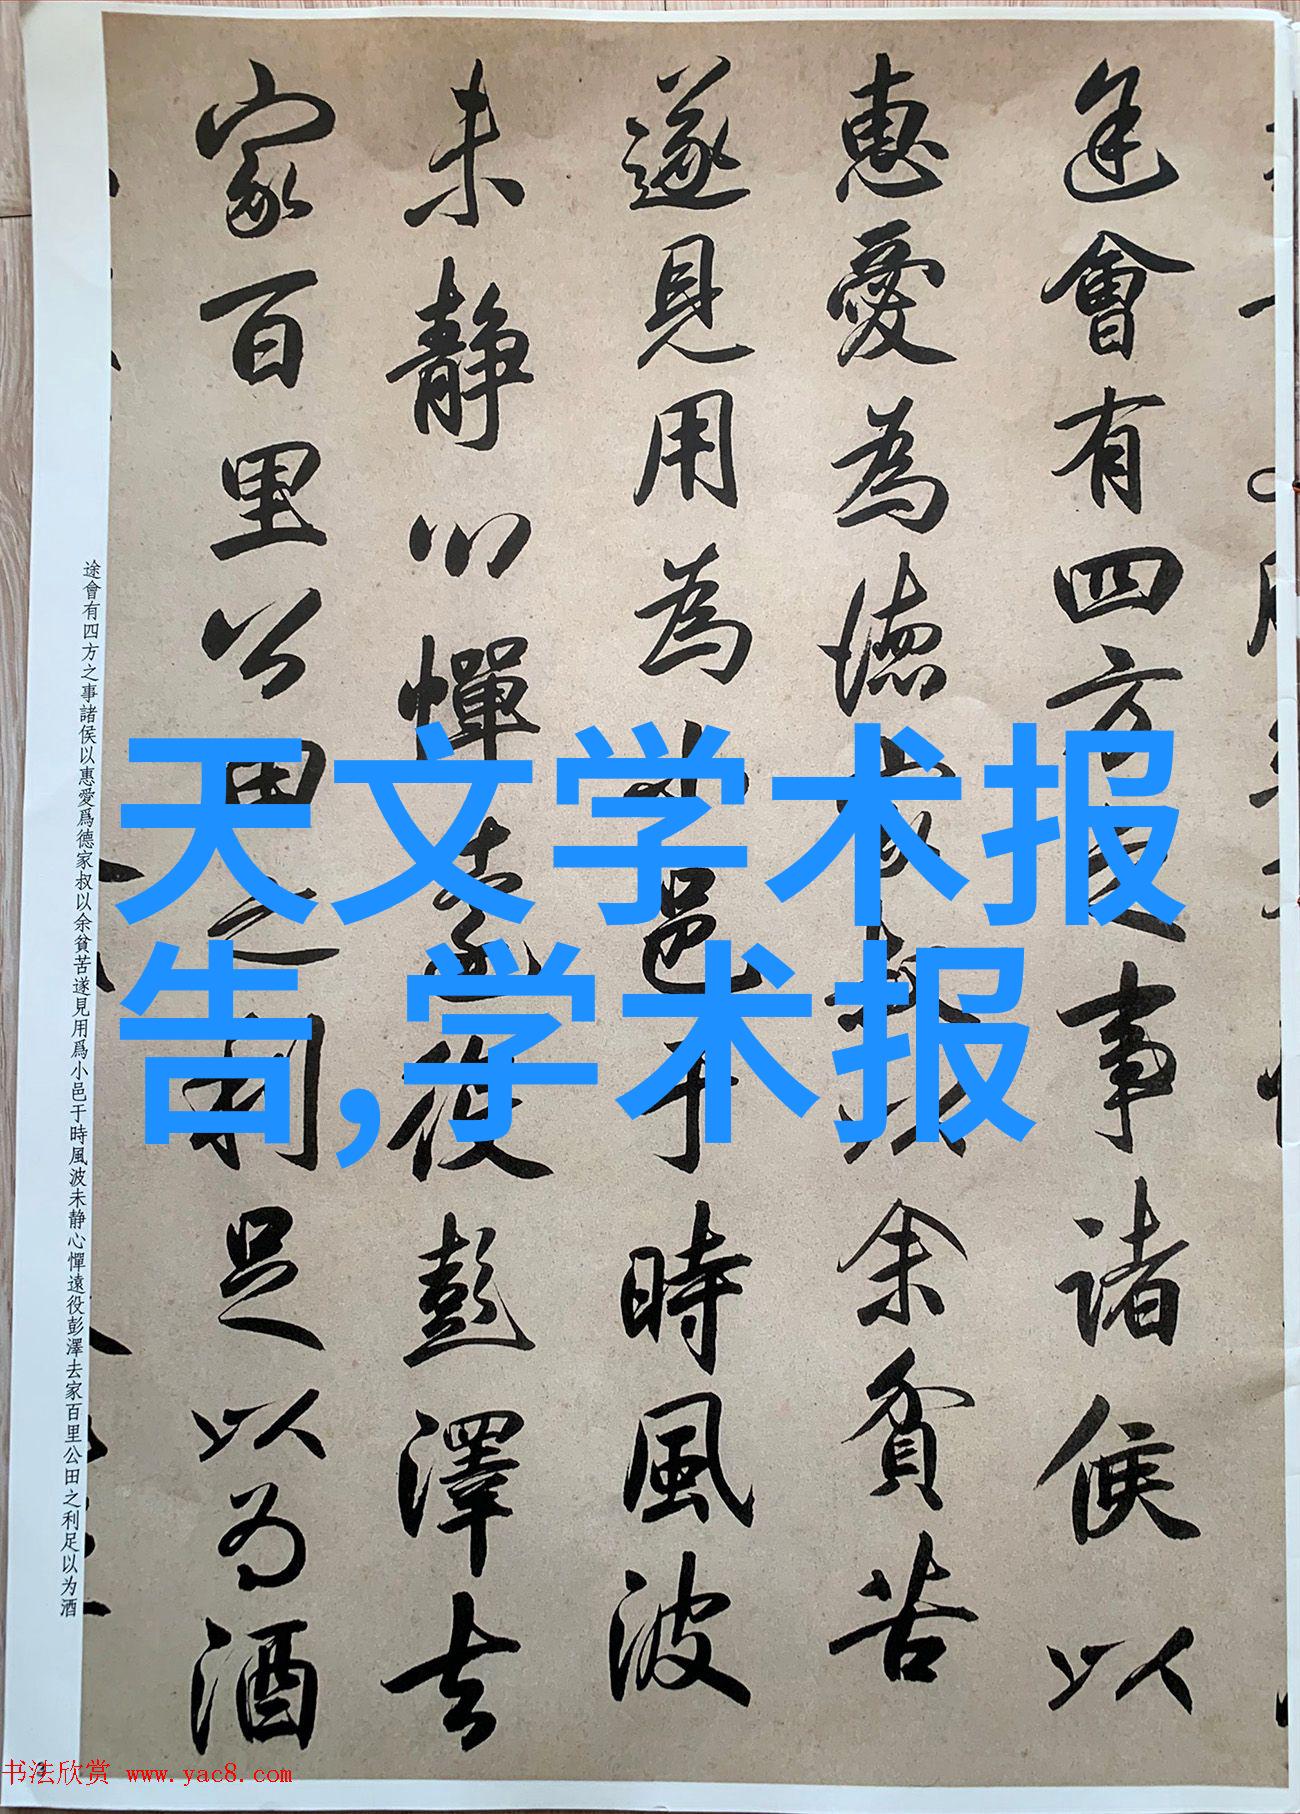 途會有四方之事諸侯以
惠愛為德家叔以余貧苦
遂見用為小邑于時風波
未静心憚遠役彭澤去
家百里公田之利足以为酒
途會有四方之事諸侯以惠愛爲德家叔以余貧苦遂見用爲小邑于時風波未静心憚遠役彭澤去家百里公田之利足以为酒
天文学术报
告,学术报
书法欣赏 www.yac8.com